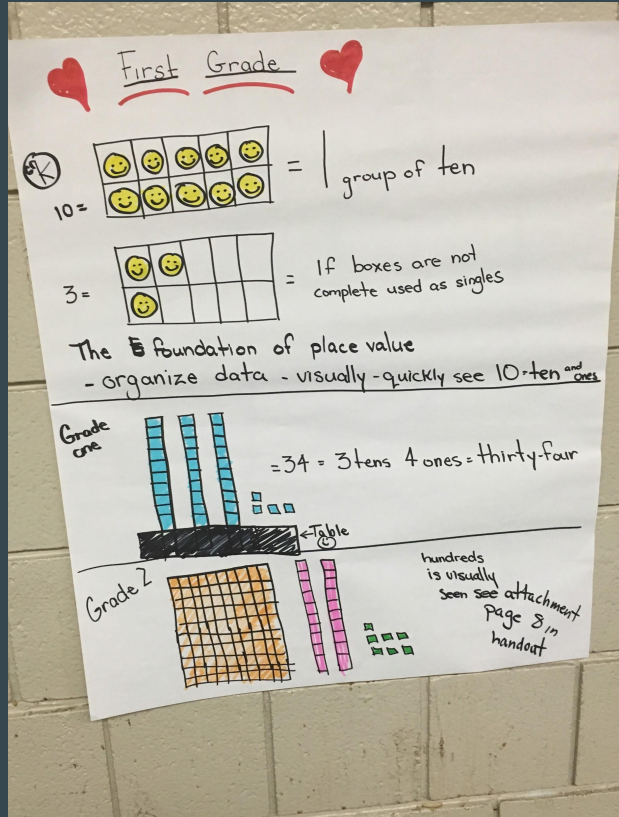 First Grade
K
10 =
= 1 group of ten
3 =
= If boxes are not
complete used as singles
The foundation of place value
- organize data - visually - quickly see 10 - ten and ones
Grade
one
= 34 = 3 tens 4 ones = thirty-four
← Table
Grade 2
hundreds
is visually
seen see attachment
page 8 in
handout